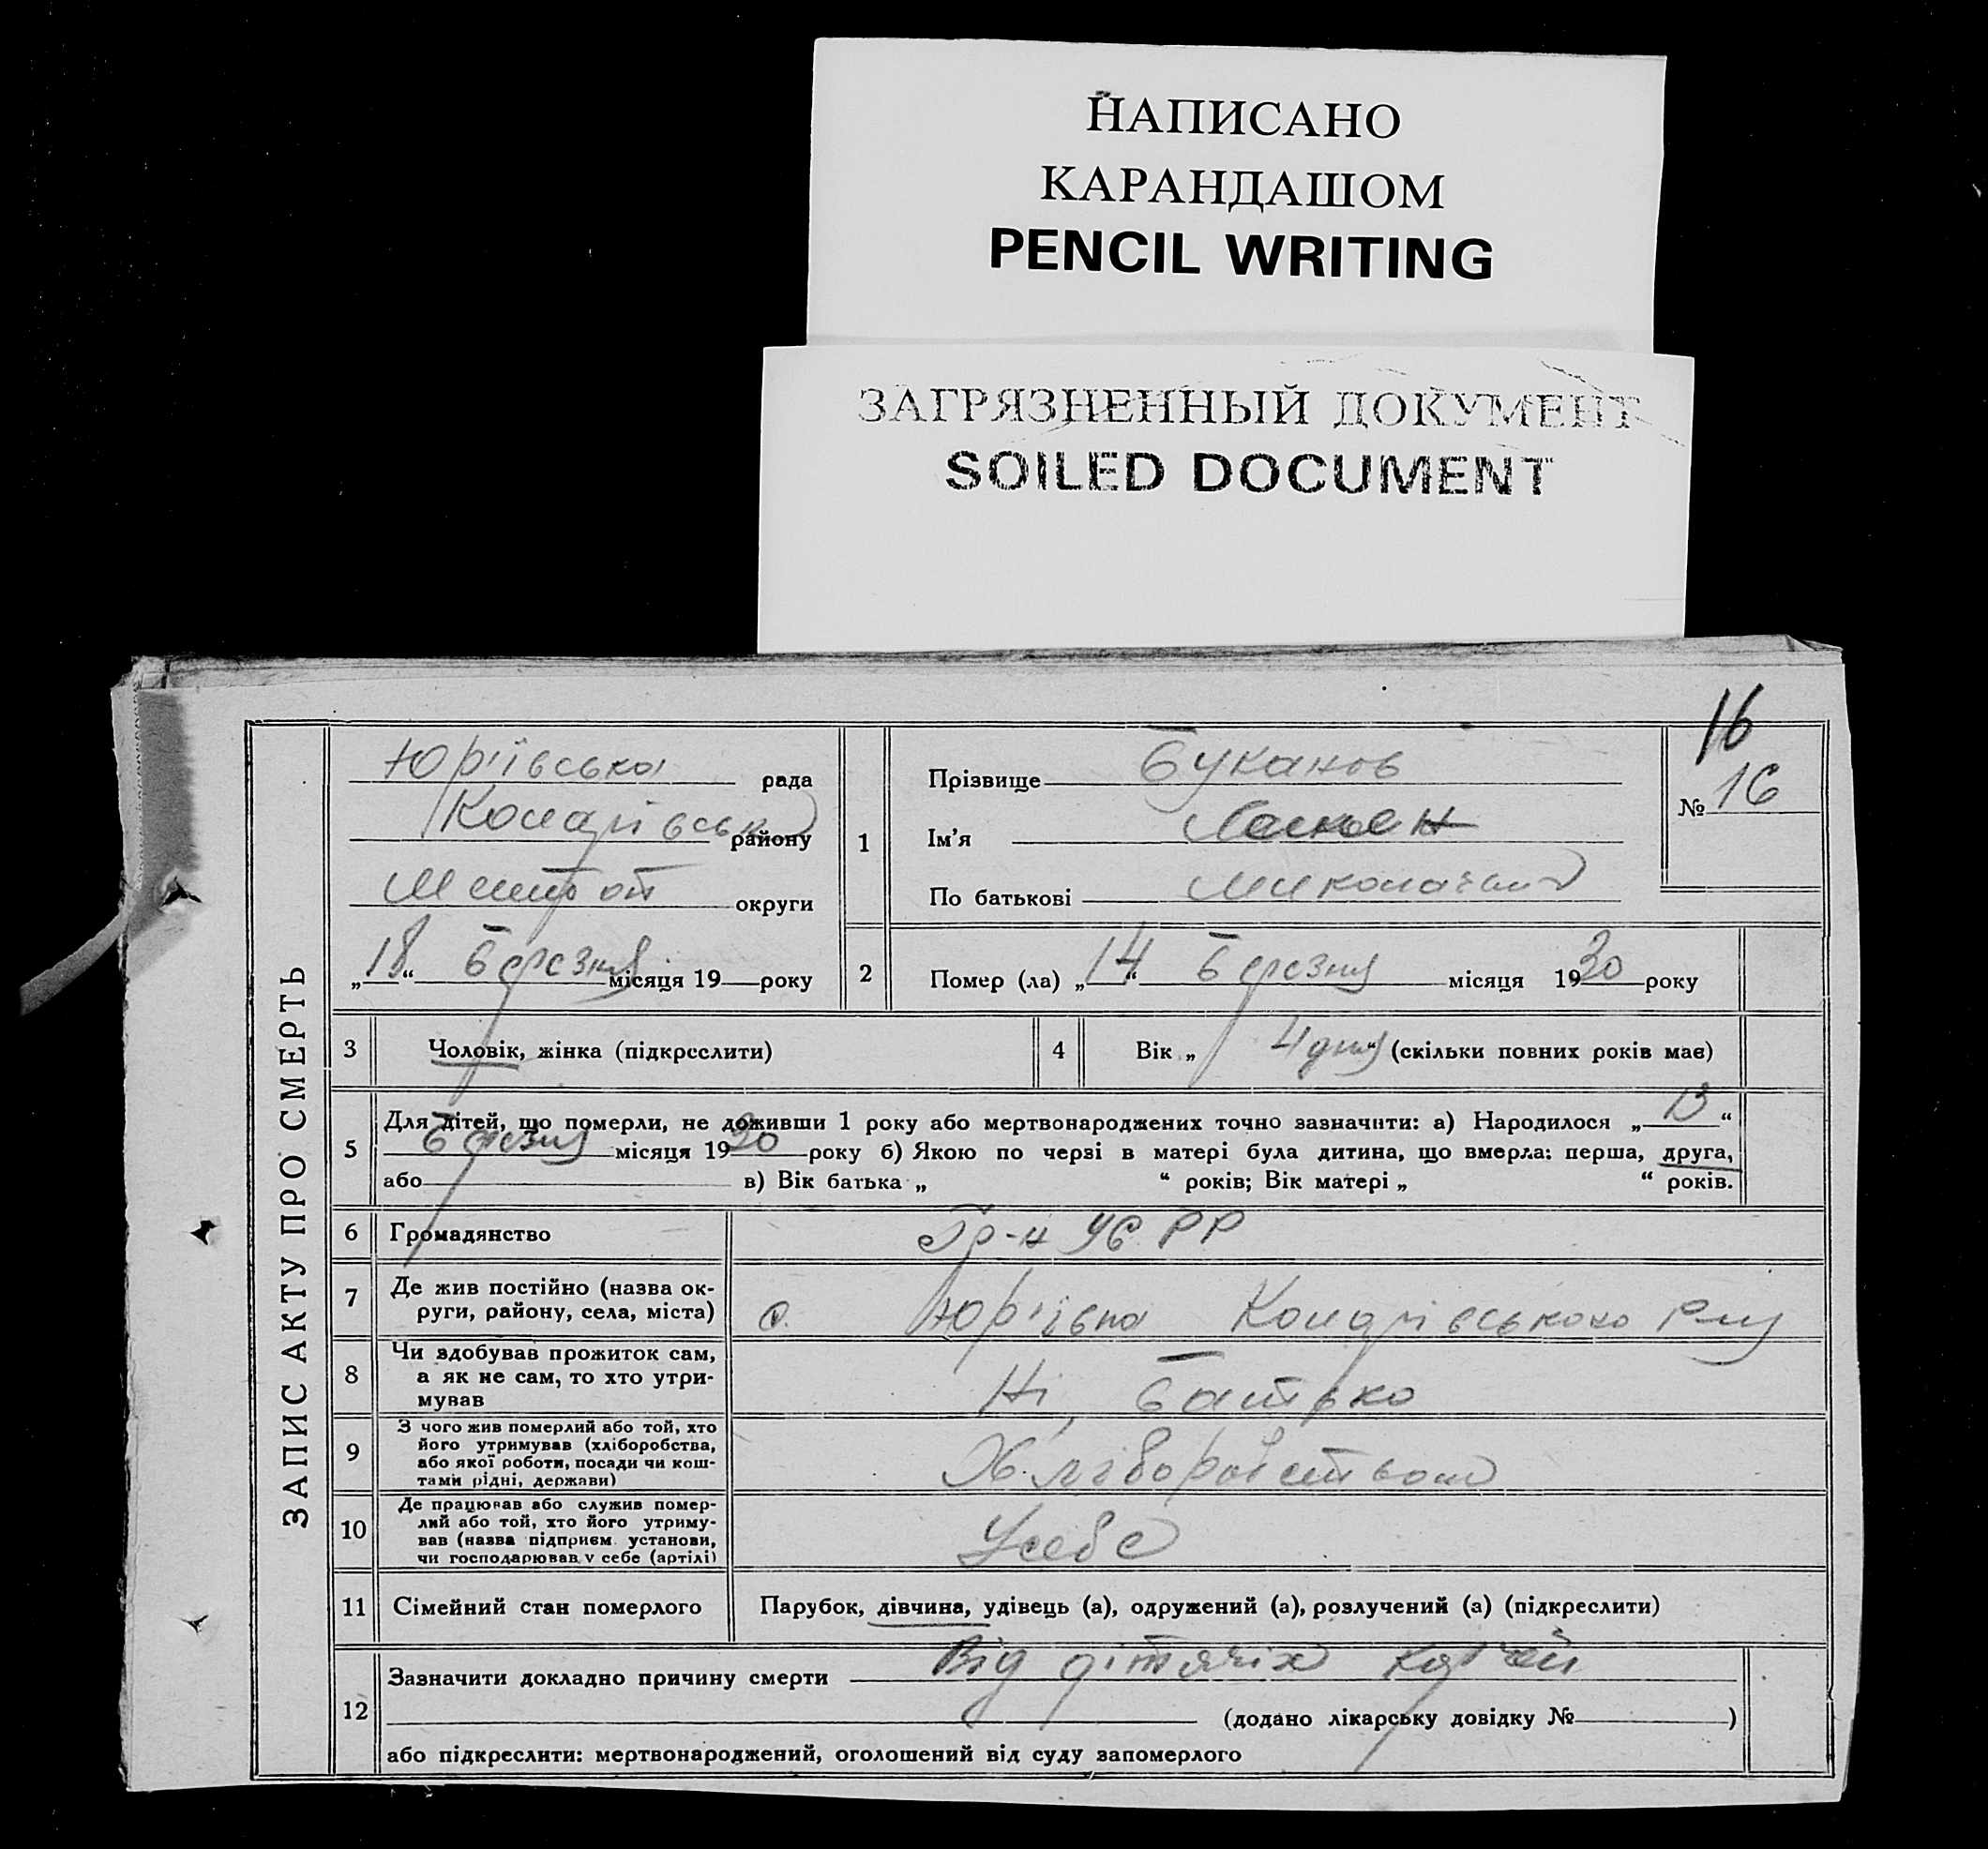 НАПИСАНО
КАРАНДАШОМ
PENCIL WRITING
ЗАГРЯЗНЕННЫЙ ДОКУМЕНТ
SOILED DOCUMENT
16
ЗАПИС АКТУ ПРО СМЕРТЬ
Юріївська рада
району
округи
„18“ березня місяця 19 року
1
Прізвище Буканов
Ім'я
По батькові
№ 16
2
Помер (ла) „14“ березня місяця 1930 року
3
Чоловік, жінка (підкреслити)
4
Вік „ 4 дня“ (скільки повних років має)
5
Для дітей, що померли, не доживши 1 року або мертвонароджених точно зазначити: а) Народилося „ “
березня місяця 1930 року б) Якою по черзі в матері була дитина, що вмерла: перша, друга,
або в) Вік батька „ “ років; Вік матері „ “ років.
6
Громадянство
Гр-н УСРР
7
Де жив постійно (назва ок-
руги, району, села, міста)
с. Юріївка
8
Чи здобував прожиток сам,
а як не сам, то хто утри-
мував
Ні, батько
9
З чого жив померлий або той, хто
його утримував (хліборобства,
або якої роботи, посади чи кош-
тами рідні, держави)
Хліборобством
10
Де працював або служив помер-
лий або той, хто його утриму-
вав (назва підприєм. установи,
чи господарював у себе (артілі)
У себе
11
Сімейний стан померлого
Парубок, дівчина, удівець (а), одружений (а), розлучений (а) (підкреслити)
12
Зазначити докладно причину смерти Від дітячіх
(додано лікарську довідку № )
або підкреслити: мертвонароджений, оголошений від суду запомерлого